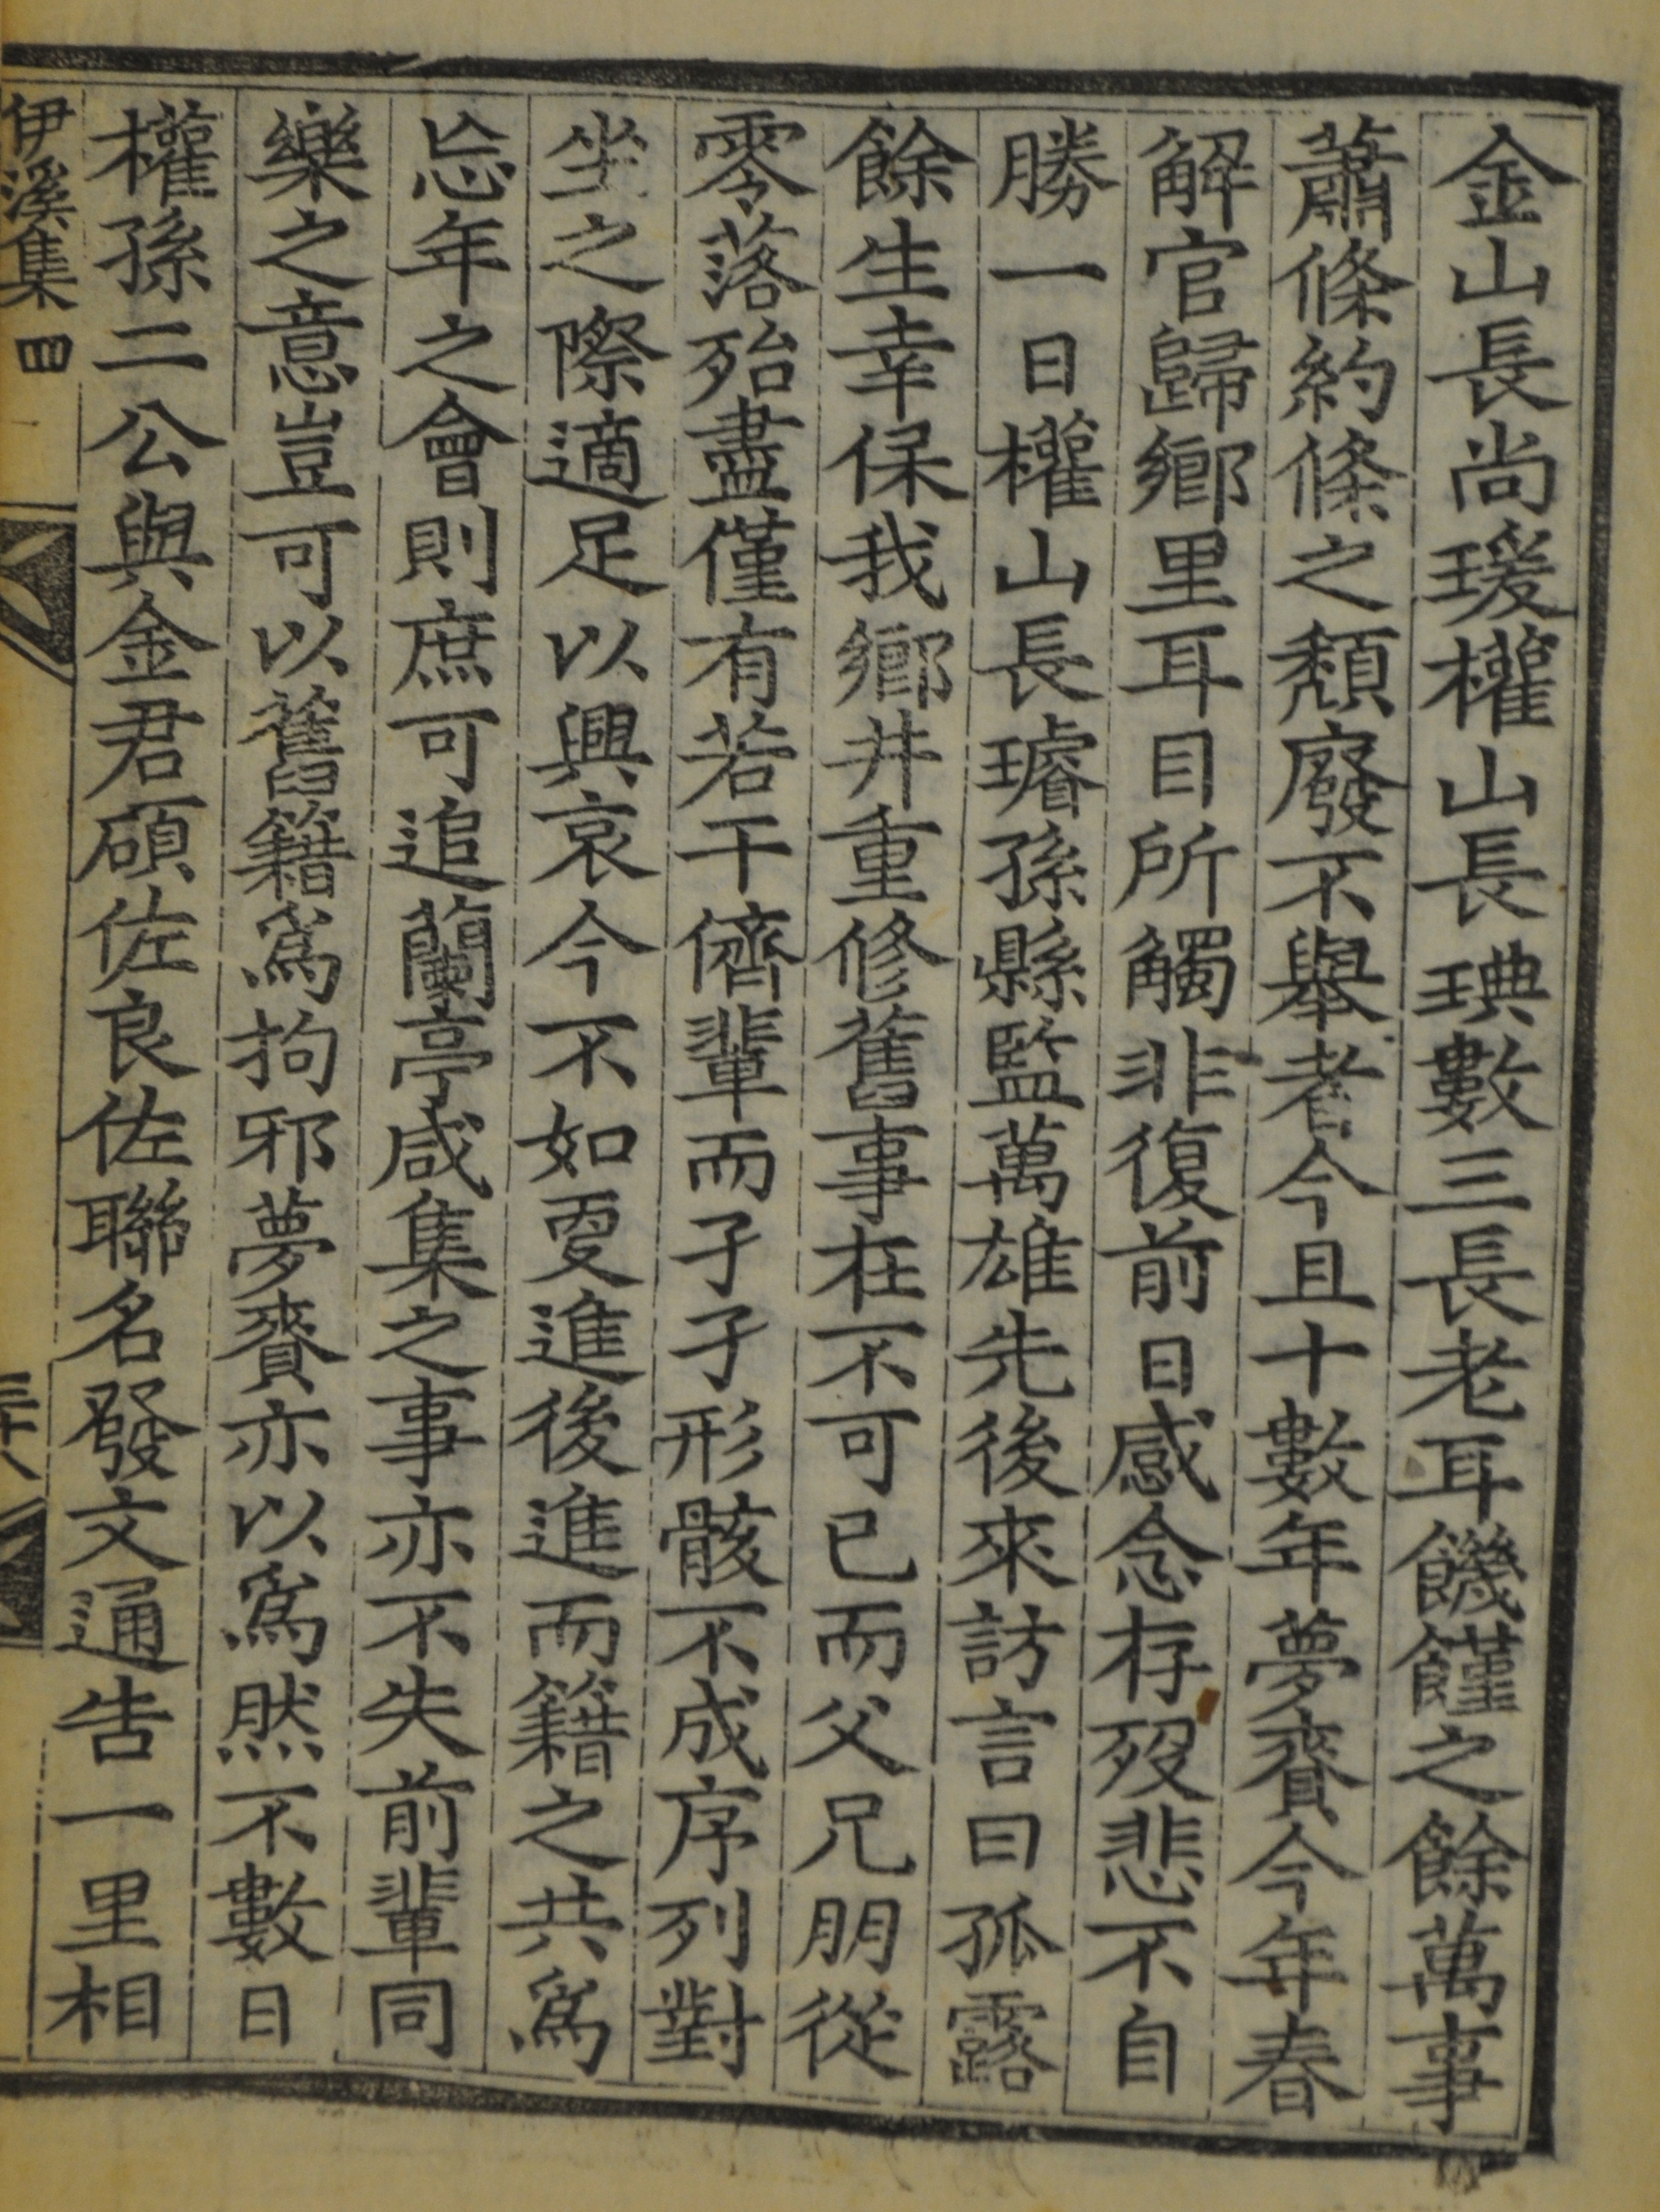 金山長尚瑗權山長琠數三長老耳饑饉之餘萬事
蕭條約條之頹廢不舉者今且十數年夢賚今年春
解官歸鄉里耳目所觸非復前日感念存歿悲不自
勝一日權山長璿孫縣監萬雄先後來訪言曰孤露
餘生幸保我鄉井重修舊事在不可已而父兄朋從
零落殆盡僅有若干儕輩而孑孑形骸不成序列對
坐之際適足以興哀今不如更進後進而籍之共爲
忘年之會則庶可追蘭亭咸集之事亦不失前輩同
樂之意豈可以舊籍爲拘邪夢賚亦以爲然不數日
權孫二公與金君碩佐良佐聯名發文通告一里相
伊溪集四
三十八